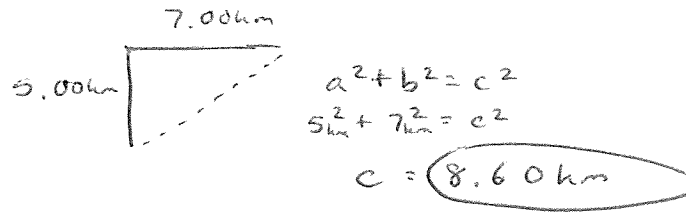 7.00km
5.00km
a² + b² = c²
5km² + 7km² = c²
c = 8.60 km